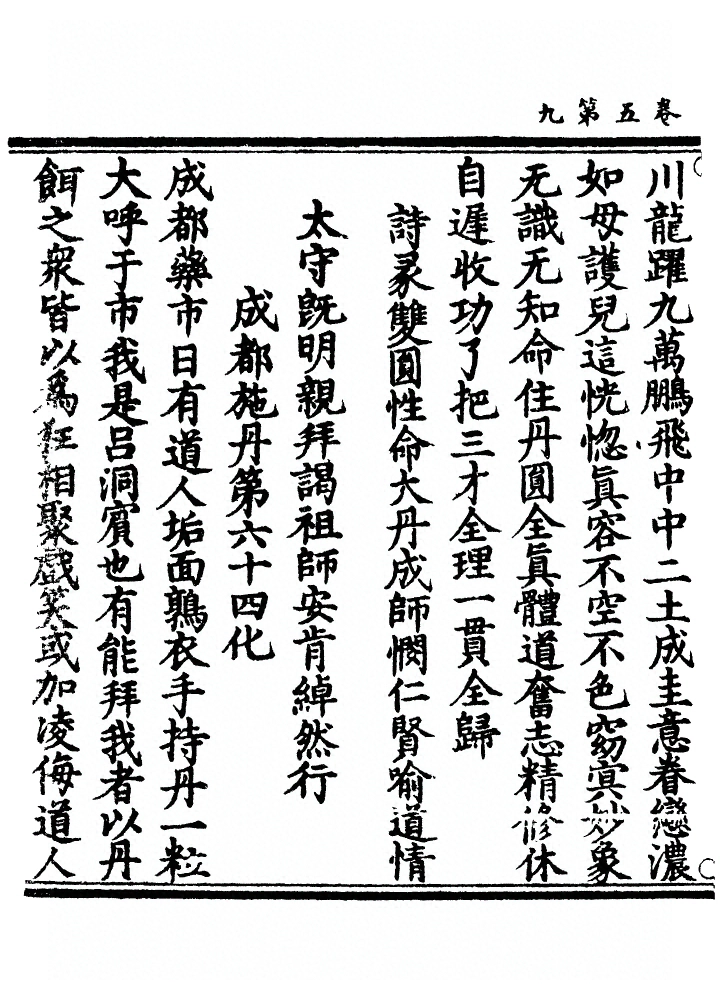 卷五第九
川龍躍九萬鵬飛中中二土成圭意眷戀濃
如母護兒這恍惚眞容不空不色窈冥妙象
无識无知命住丹圓全眞體道奮志精修休
自遲收功了把三才全理一貫全歸
詩彖雙圓性命大丹成師憫仁賢喻道情
太守既明親拜謁祖師安肯綽然行
成都施丹第六十四化
成都藥市日有道人垢面鶉衣手持丹一粒
大呼于市我是吕洞賓也有能拜我者以丹
餌之衆皆以爲狂相聚戲笑或加凌侮道人